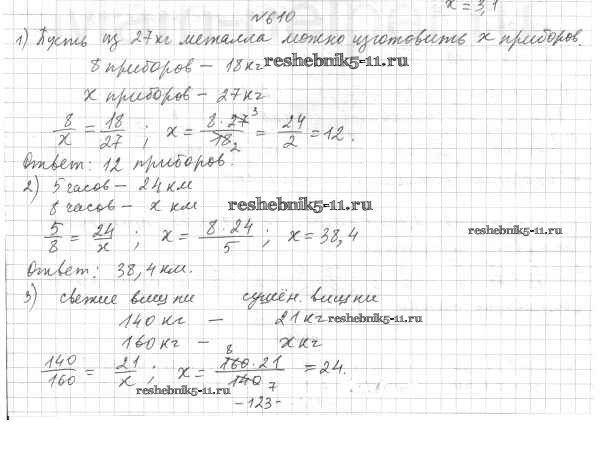 x = 3,1
№610
1) Пусть из 27 кг металла можно изготовить x приборов.
8 приборов — 18 кг
reshebnik5-11.ru
x приборов — 27 кг
8/x = 18/27 ; x = 8·27³/18₂ = 24/2 = 12.
Ответ: 12 приборов.
2) 5 часов — 24 км
8 часов — x км
reshebnik5-11.ru
5/8 = 24/x ; x = 8·24/5 ; x = 38,4
reshebnik5-11.ru
Ответ: 38,4 км.
3) свежие вишни сушён. вишни
140 кг — 21 кг
reshebnik5-11.ru
160 кг — x кг
140/160 = 21/x ; x = 160⁸·21/140₇ = 24.
reshebnik5-11.ru
-123-